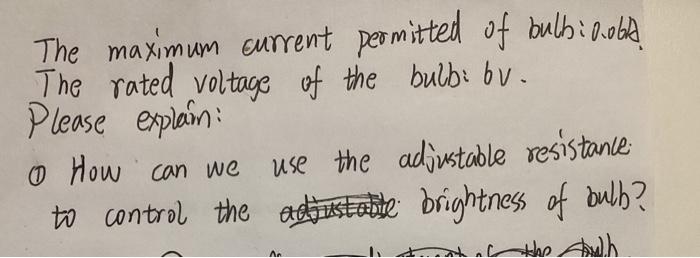 The maximum current permitted of bulb: 0.06A.
The rated voltage of the bulb: 6V.
Please explain:
① How can we use the adjustable resistance
to control the adjustable brightness of bulb?
of the bulb